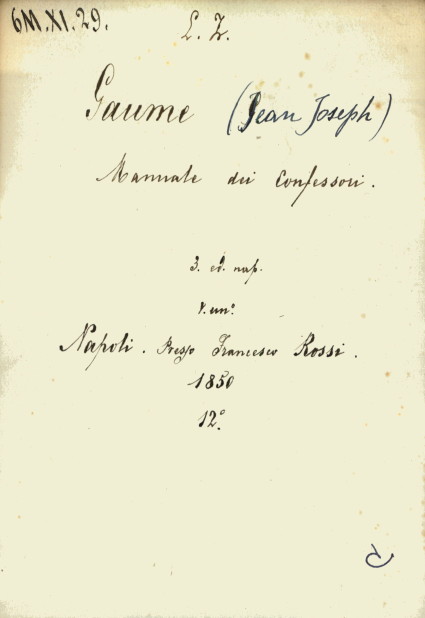 6M.XI.29.
L. Z.
Gaume (Jean Joseph)
Manuale dei Confessori.
3. ed. nap.
V. un°.
Napoli. Presso Francesco Rossi.
1850
12°.